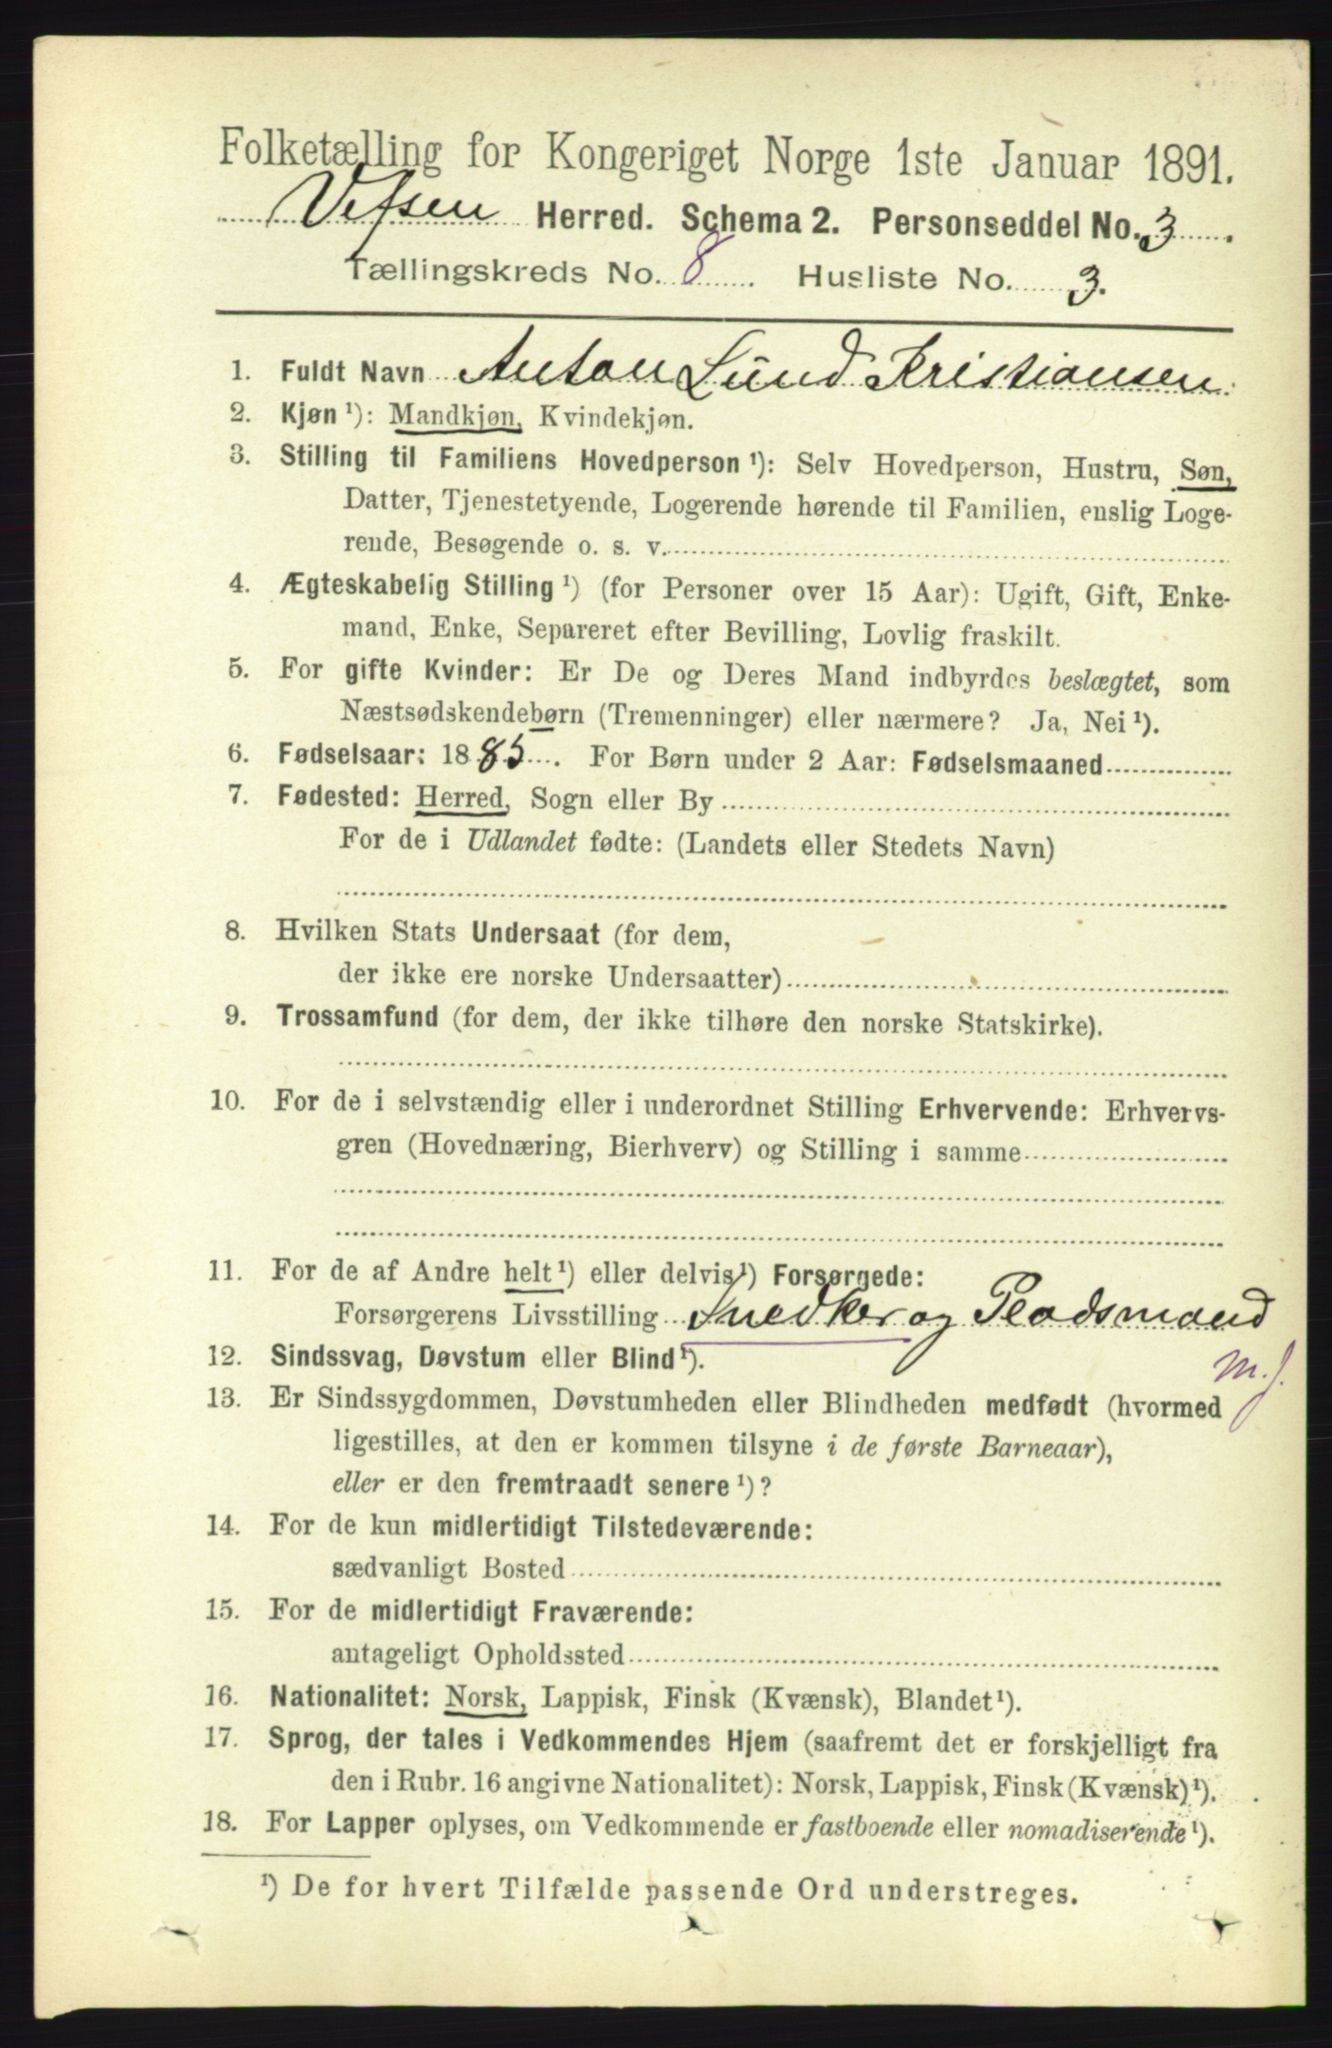 Folketælling for Kongeriget Norge 1ste Januar 1891.
Vefsen Herred. Schema 2. Personseddel No. 3
Tællingskreds No. 8 Husliste No. 3.
1. Fuldt Navn Anton Lund Kristiansen.
2. Kjøn¹): Mandkjøn, Kvindekjøn.
3. Stilling til Familiens Hovedperson¹): Selv Hovedperson, Hustru, Søn,
Datter, Tjenestetyende, Logerende hørende til Familien, enslig Loge-
rende, Besøgende o. s. v.
4. Ægteskabelig Stilling¹) (for Personer over 15 Aar): Ugift, Gift, Enke-
mand, Enke, Separeret efter Bevilling, Lovlig fraskilt.
5. For gifte Kvinder: Er De og Deres Mand indbyrdes beslægtet, som
Næstsødskendebørn (Tremenninger) eller nærmere? Ja, Nei¹).
6. Fødselsaar: 1885. For Børn under 2 Aar: Fødselsmaaned
7. Fødested: Herred, Sogn eller By
For de i Udlandet fødte: (Landets eller Stedets Navn)
8. Hvilken Stats Undersaat (for dem,
der ikke ere norske Undersaatter)
9. Trossamfund (for dem, der ikke tilhøre den norske Statskirke).
10. For de i selvstændig eller i underordnet Stilling Erhvervende: Erhvervs-
gren (Hovednæring, Bierhverv) og Stilling i samme
11. For de af Andre helt¹) eller delvis¹) Forsørgede:
Forsørgerens Livsstilling Snedker og Pladsmand
12. Sindssvag, Døvstum eller Blind¹). m.j.
13. Er Sindssygdommen, Døvstumheden eller Blindheden medfødt (hvormed
ligestilles, at den er kommen tilsyne i de første Barneaar),
eller er den fremtraadt senere¹)?
14. For de kun midlertidigt Tilstedeværende:
sædvanligt Bosted
15. For de midlertidigt Fraværende:
antageligt Opholdssted
16. Nationalitet: Norsk, Lappisk, Finsk (Kvænsk), Blandet¹).
17. Sprog, der tales i Vedkommendes Hjem (saafremt det er forskjelligt fra
den i Rubr. 16 angivne Nationalitet): Norsk, Lappisk, Finsk (Kvænsk)¹).
18. For Lapper oplyses, om Vedkommende er fastboende eller nomadiserende¹).
¹) De for hvert Tilfælde passende Ord understreges.